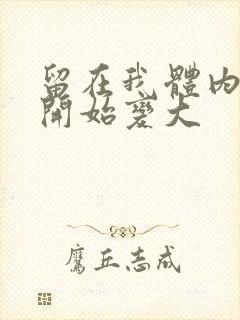 留在我體內
開始變大
鷹丘志成